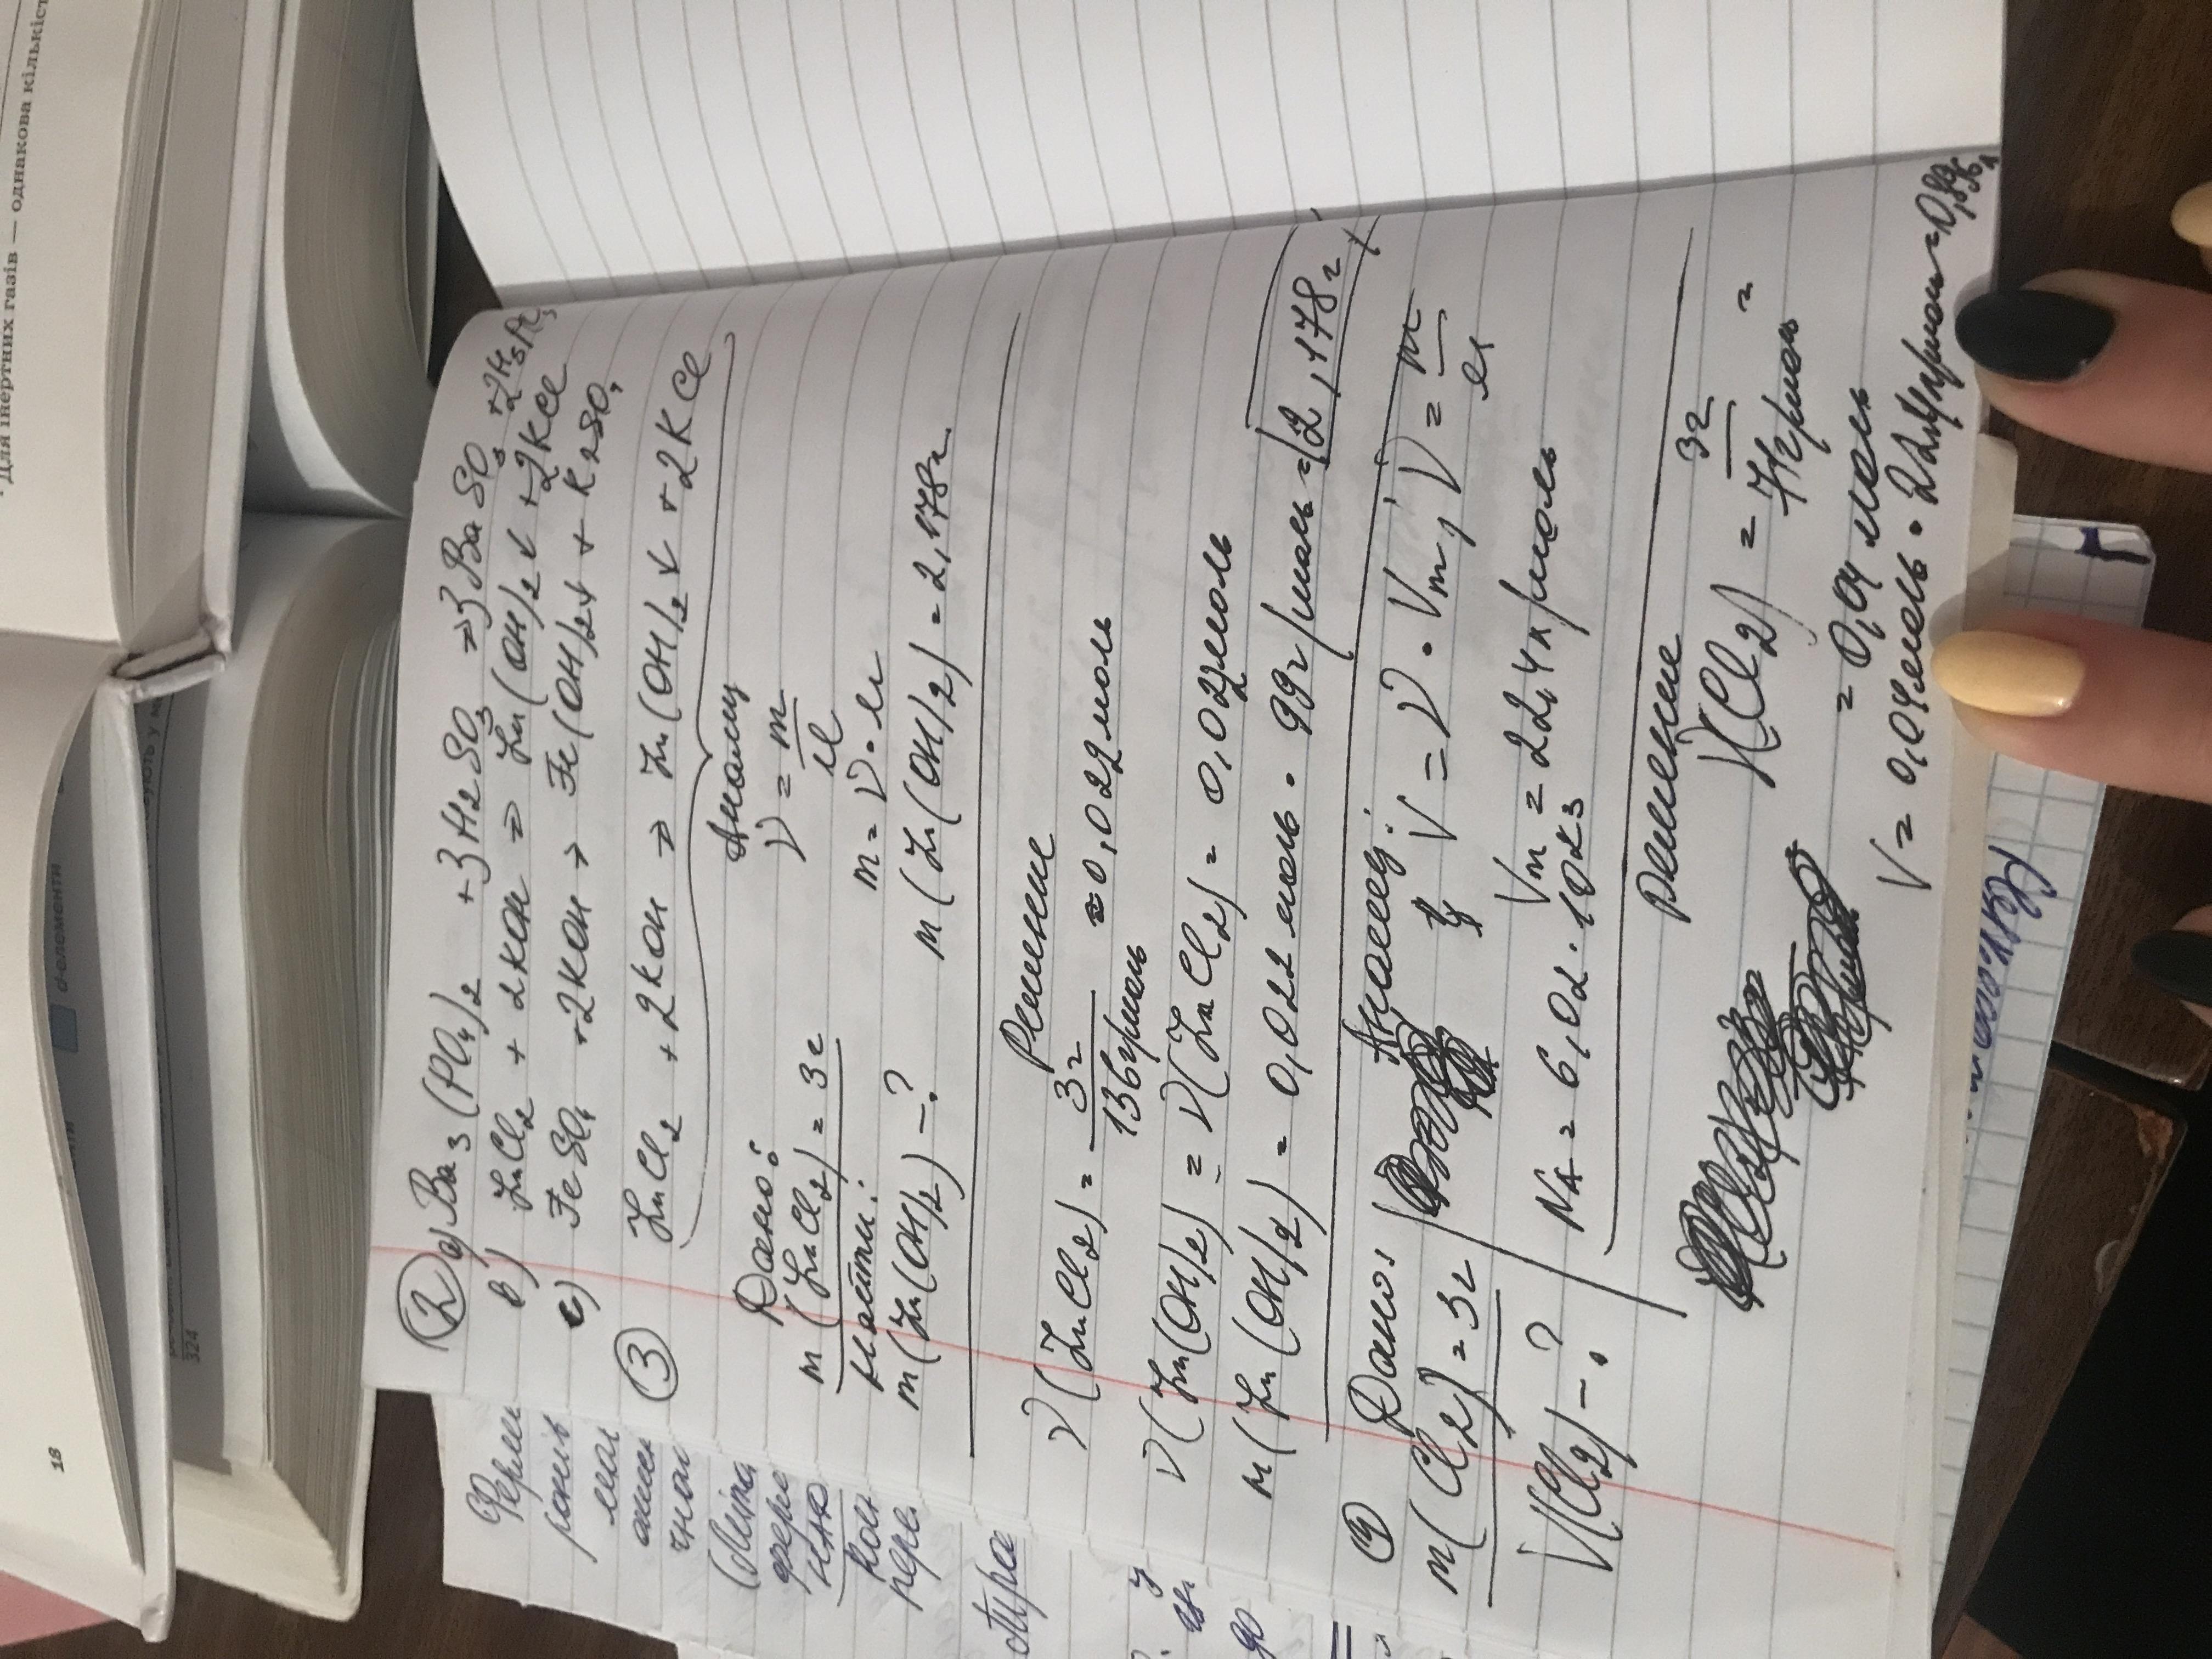 Для інертних газів — однакова кількіст
d-елементи
324
18
② a) Ba₃(PO₄)₂ + 3H₂SO₃ → 3BaSO₃ + 2H₃PO₄
b) ZnCl₂ + 2KOH → Zn(OH)₂↓ + 2KCl
c) FeSO₄ + 2KOH → Fe(OH)₂↓ + K₂SO₄
③ ZnCl₂ + 2KOH → Zn(OH)₂↓ + 2KCl
Дано:
m(ZnCl₂) = 3г
Найти:
m(Zn(OH)₂) – ?
Анализ
ν = m/M
m = ν · M
m(Zn(OH)₂) = 2,178г.
Решение
ν(ZnCl₂) = 3г / 136г/моль = 0,022 моль
ν(Zn(OH)₂) = ν(ZnCl₂) = 0,022моль
m(Zn(OH)₂) = 0,022 моль · 99г/моль = 2,178г
④ Дано:
m(Cl₂) = 3г
V(Cl₂) – ?
Анализ:
V = ν · Vm, ν = m/M
Vm = 22,4л/моль
NA = 6,02 · 10²³
Решение
ν(Cl₂) = 3г / 71г/моль =
= 0,04 моль
V = 0,04моль · 22,4л/моль = 0,896л